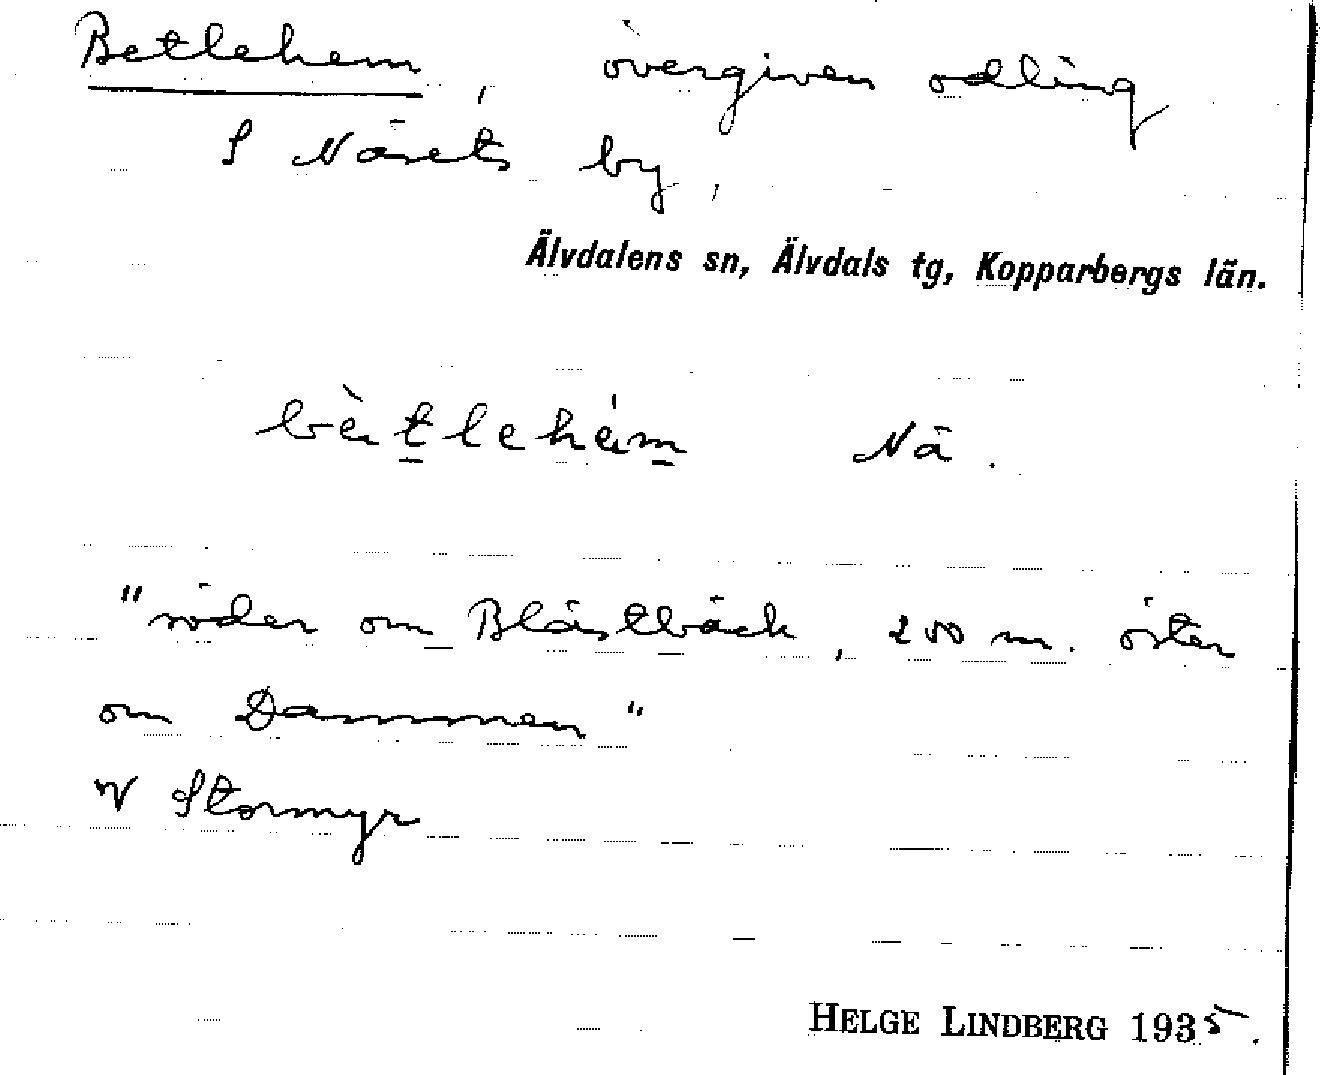 Betlehem, övergiven odling
S Näsets by,
Älvdalens sn, Älvdals tg, Kopparbergs län.
bètlehém Nä.
"söder om Blåstbäck, 200 m. öster
om Dammen"
V Stormyr
HELGE LINDBERG 1935.